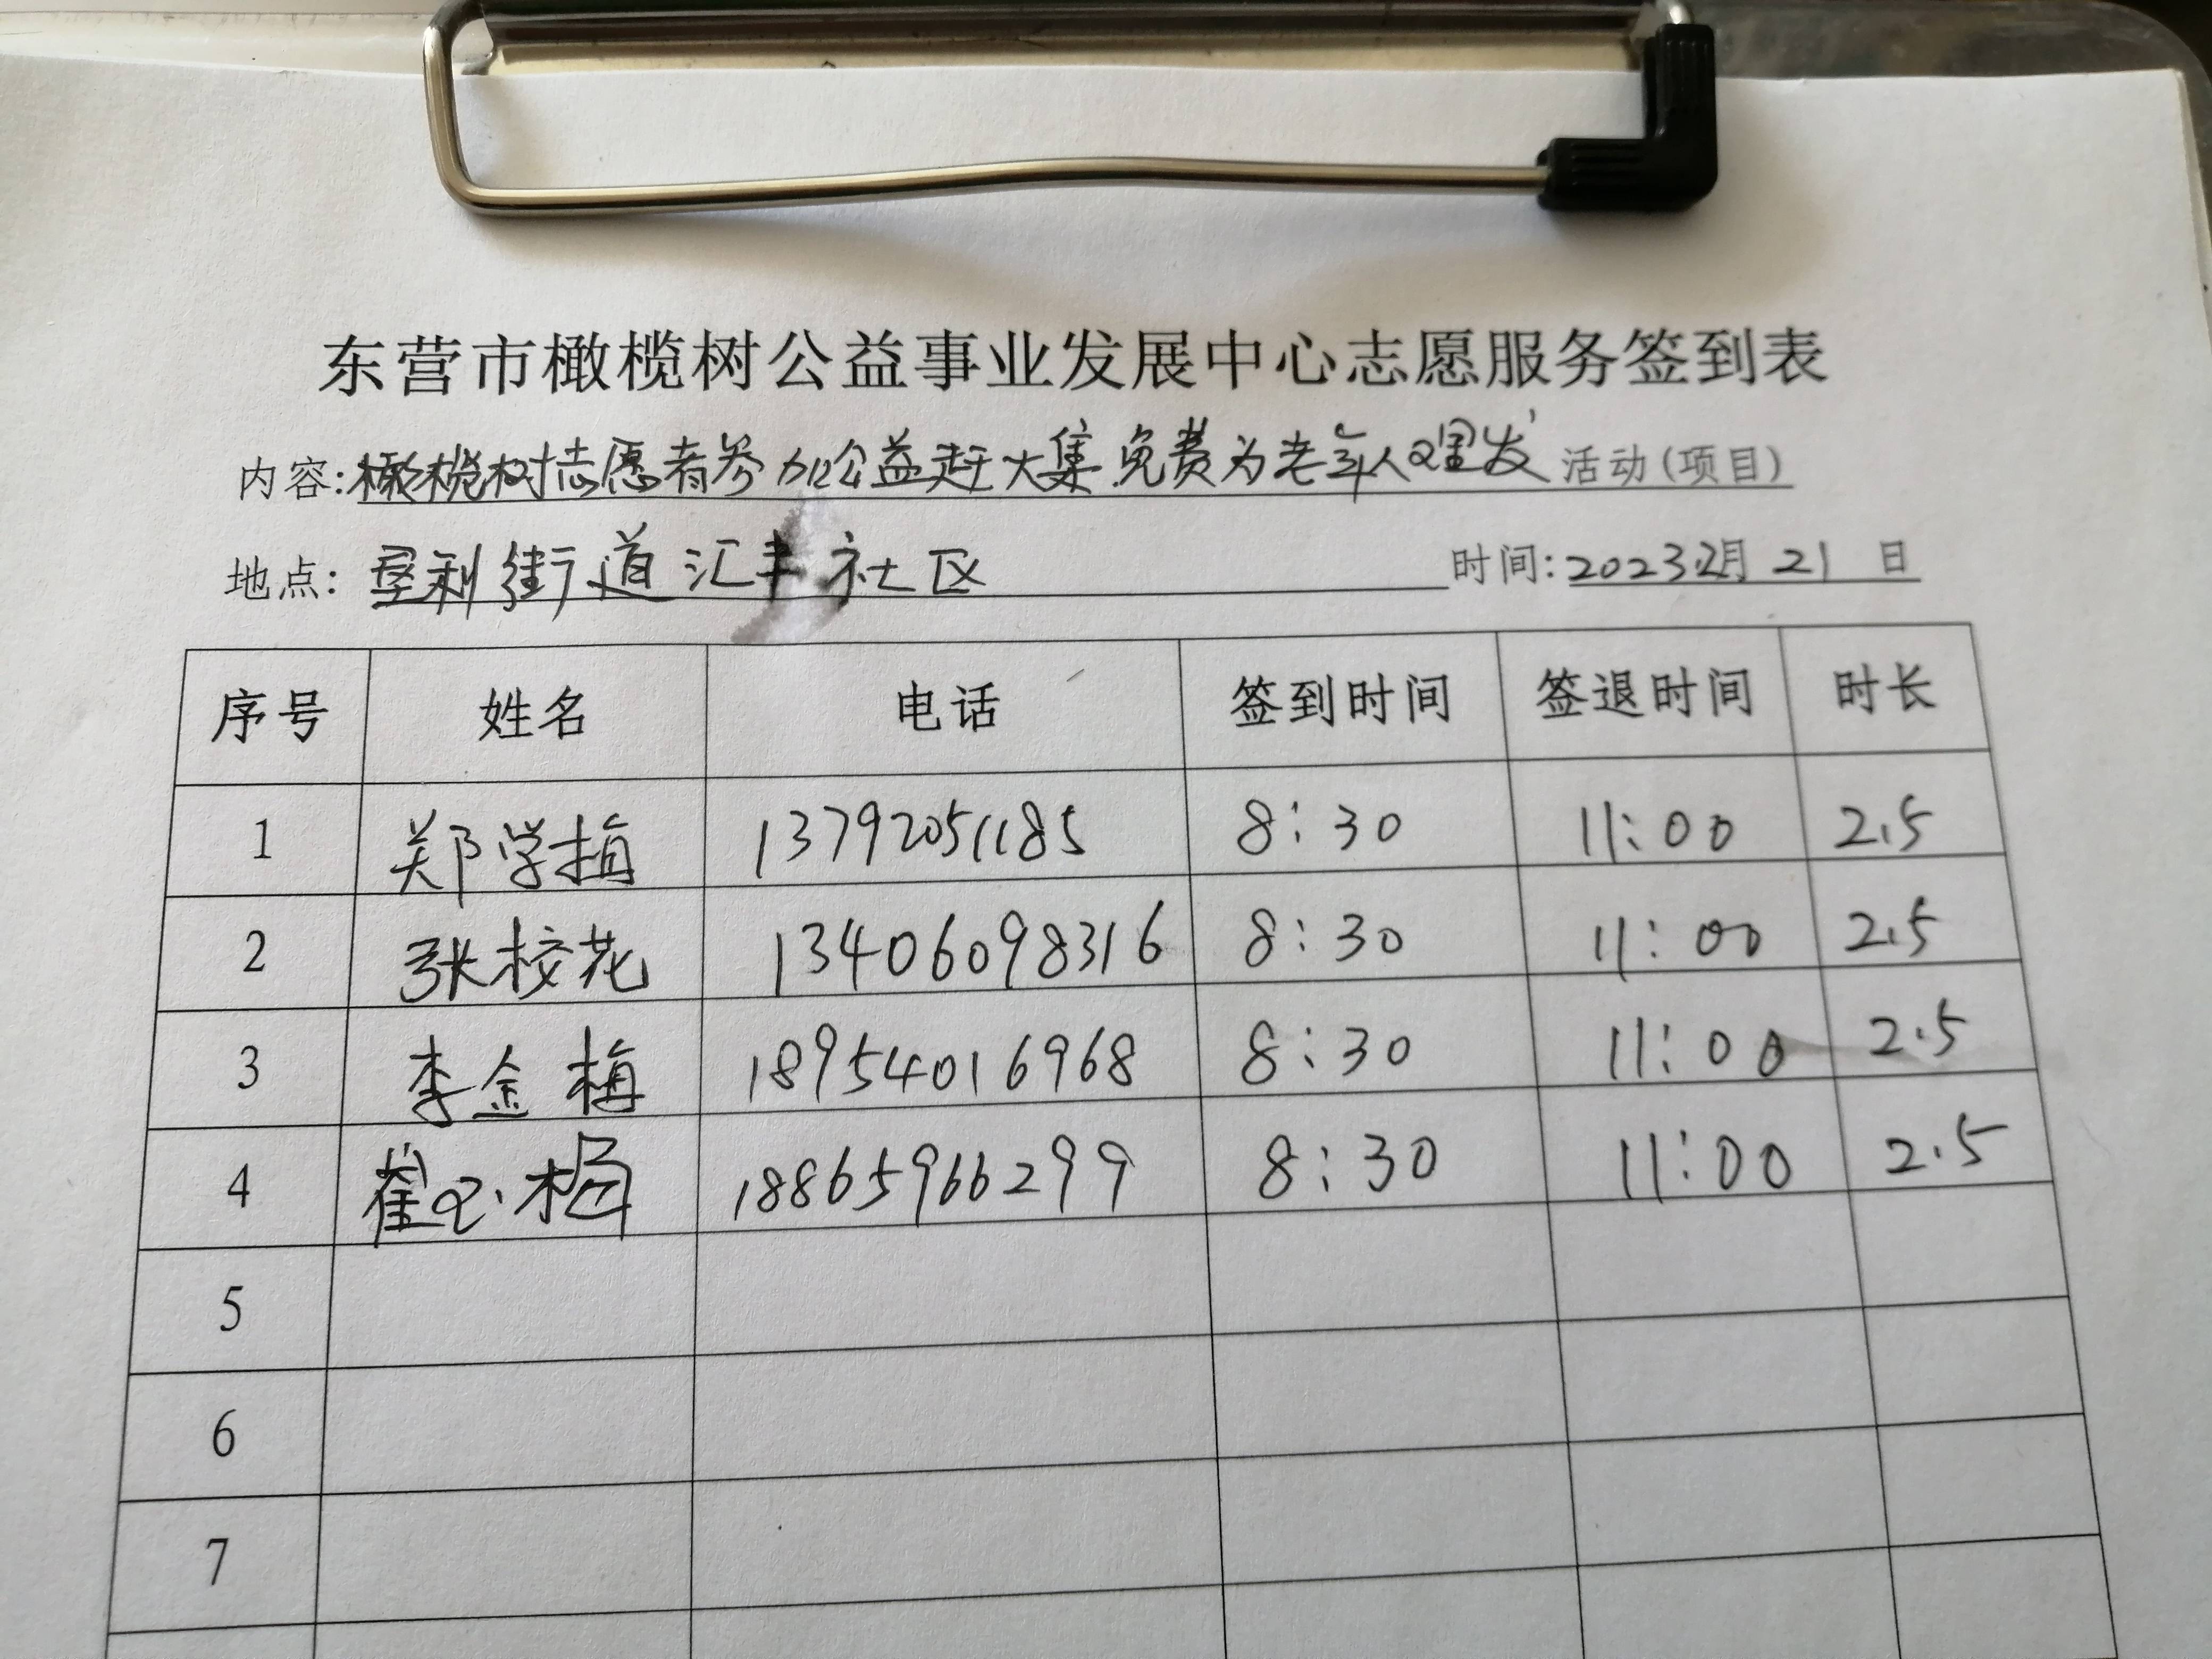 东营市橄榄树公益事业发展中心志愿服务签到表
内容:橄榄树志愿者参加公益赶大集免费为老年人理发活动(项目)
地点:垦利街道汇丰社区 时间:2023.2月21日
序号 姓名 电话 签到时间 签退时间 时长
1 郑学梅 13792051185 8:30 11:00 2.5
2 张校花 13406098316 8:30 11:00 2.5
3 李金梅 18954016968 8:30 11:00 2.5
4 崔 梅 18865966299 8:30 11:00 2.5
5
6
7